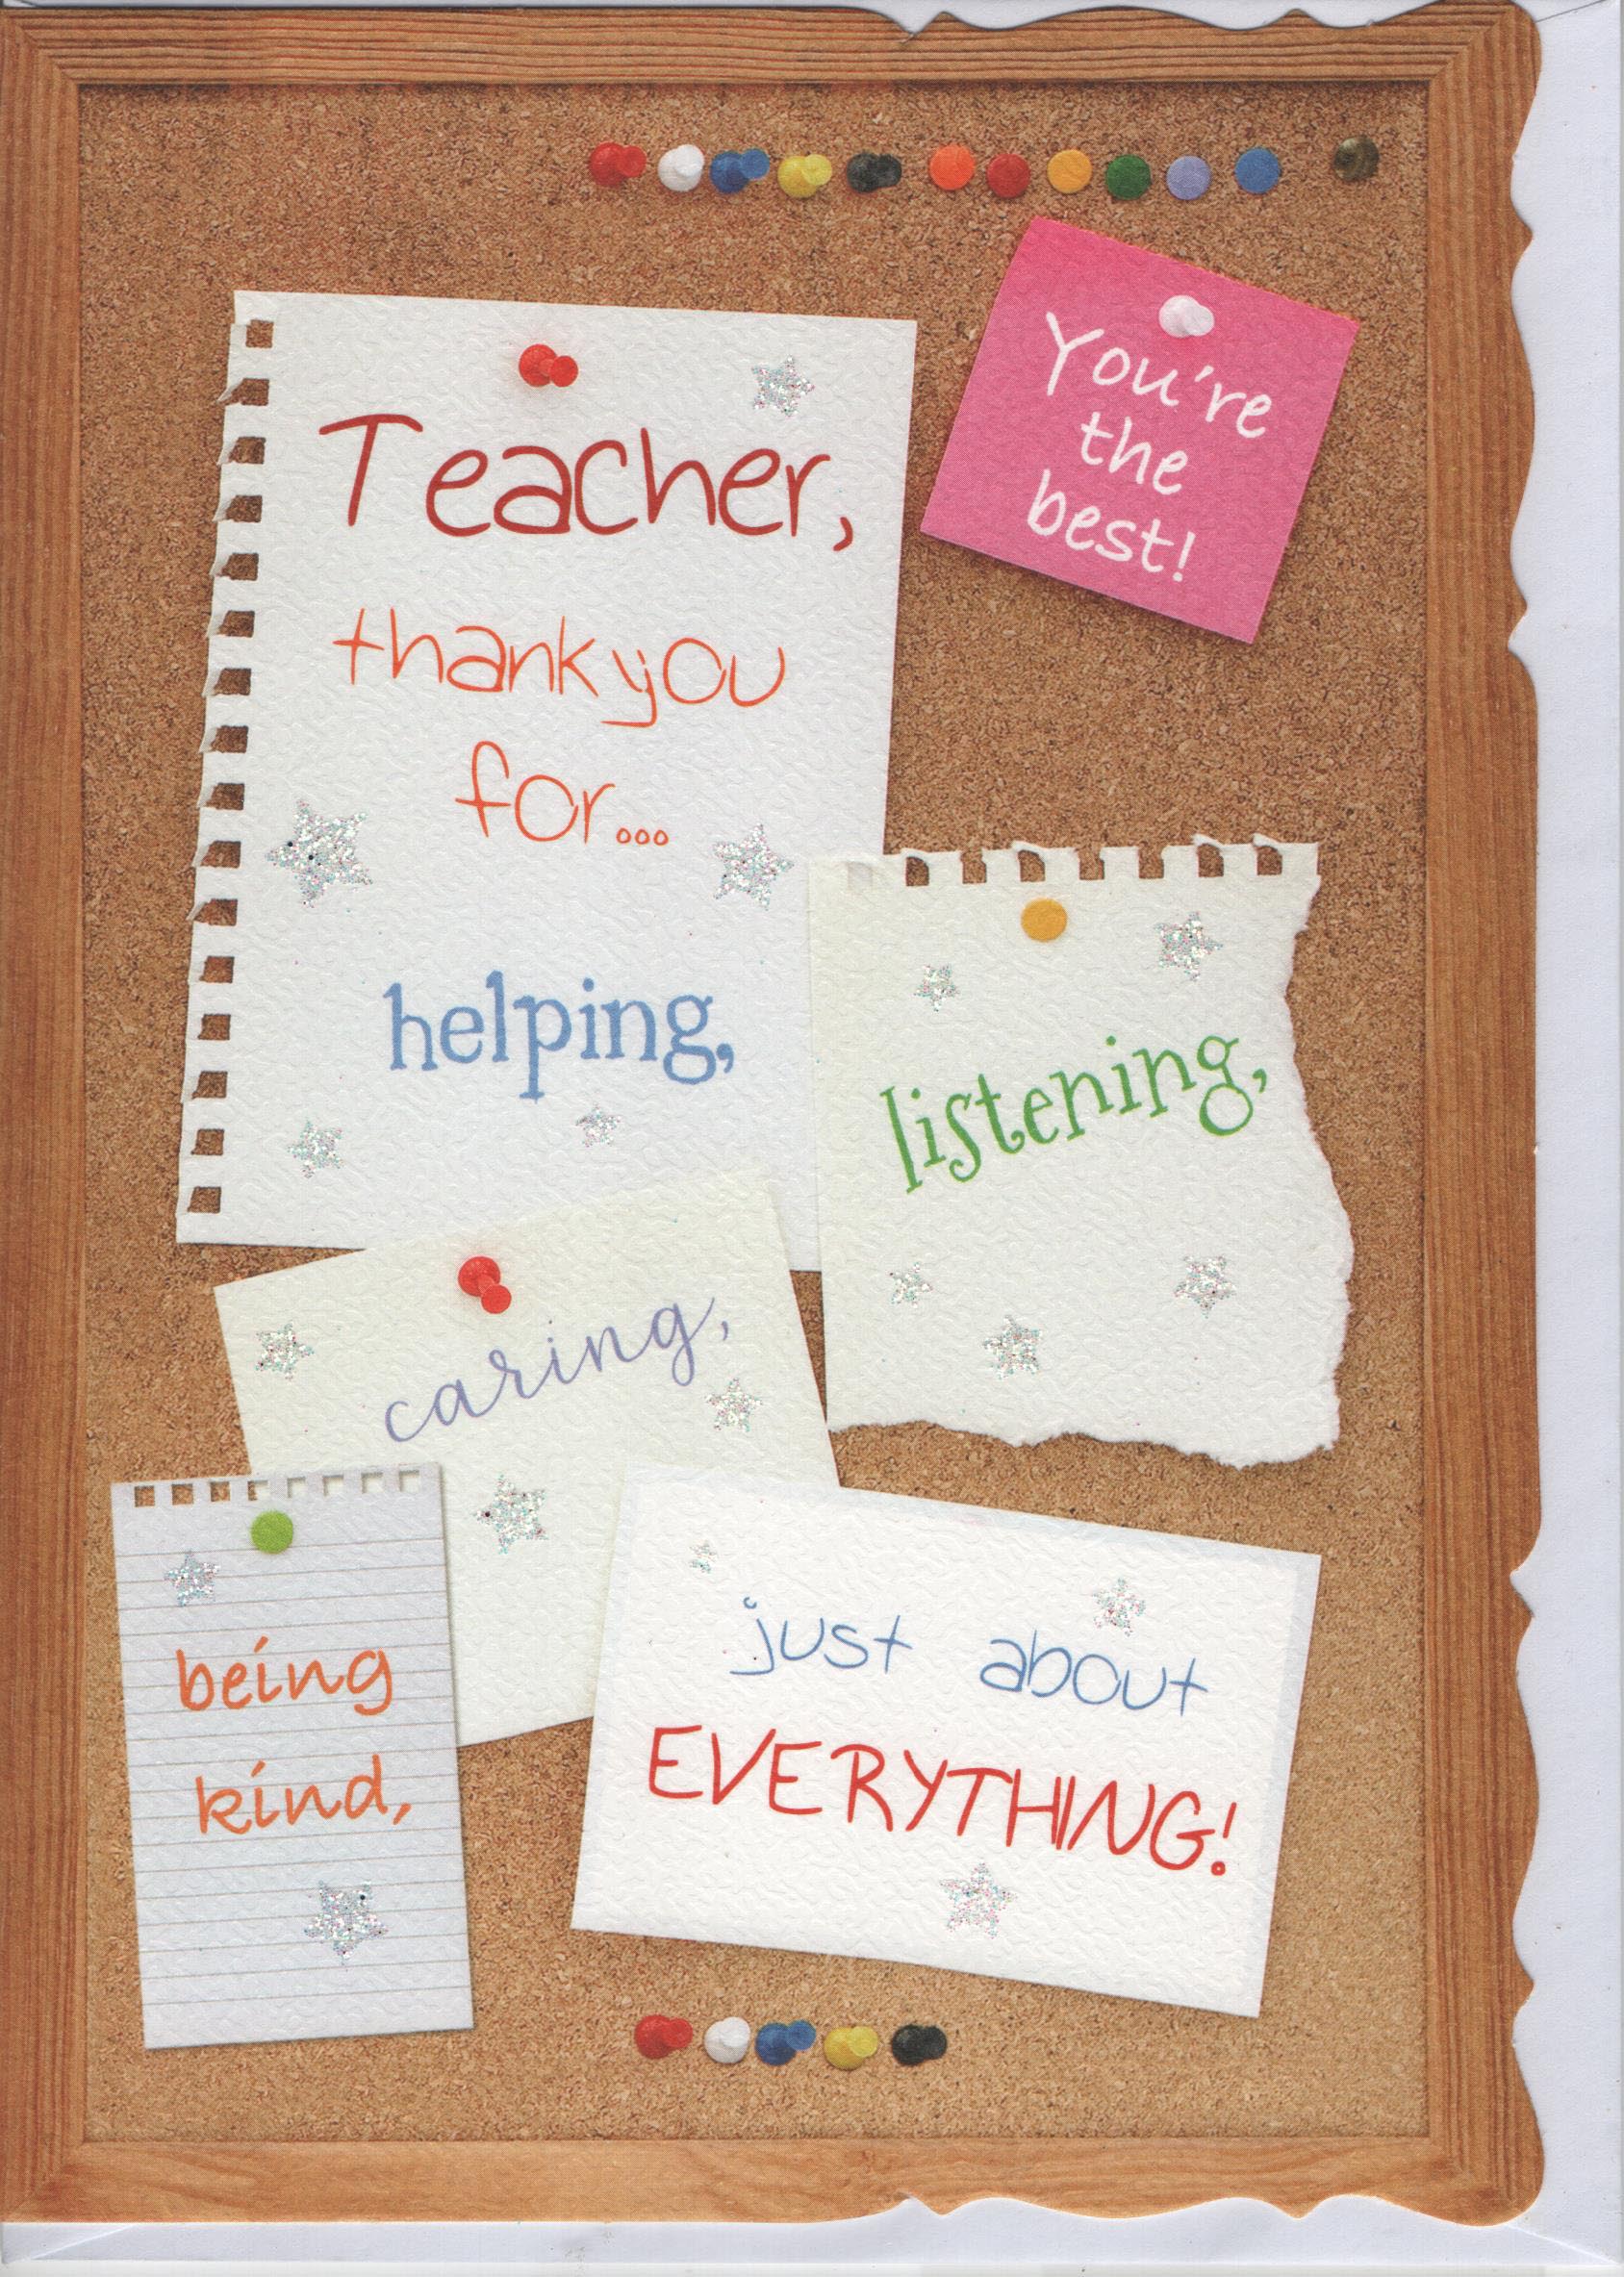 Teacher,
thank you
for...
helping,
You're
the
best!
listening,
caring,
being
kind,
just about
EVERYTHING!